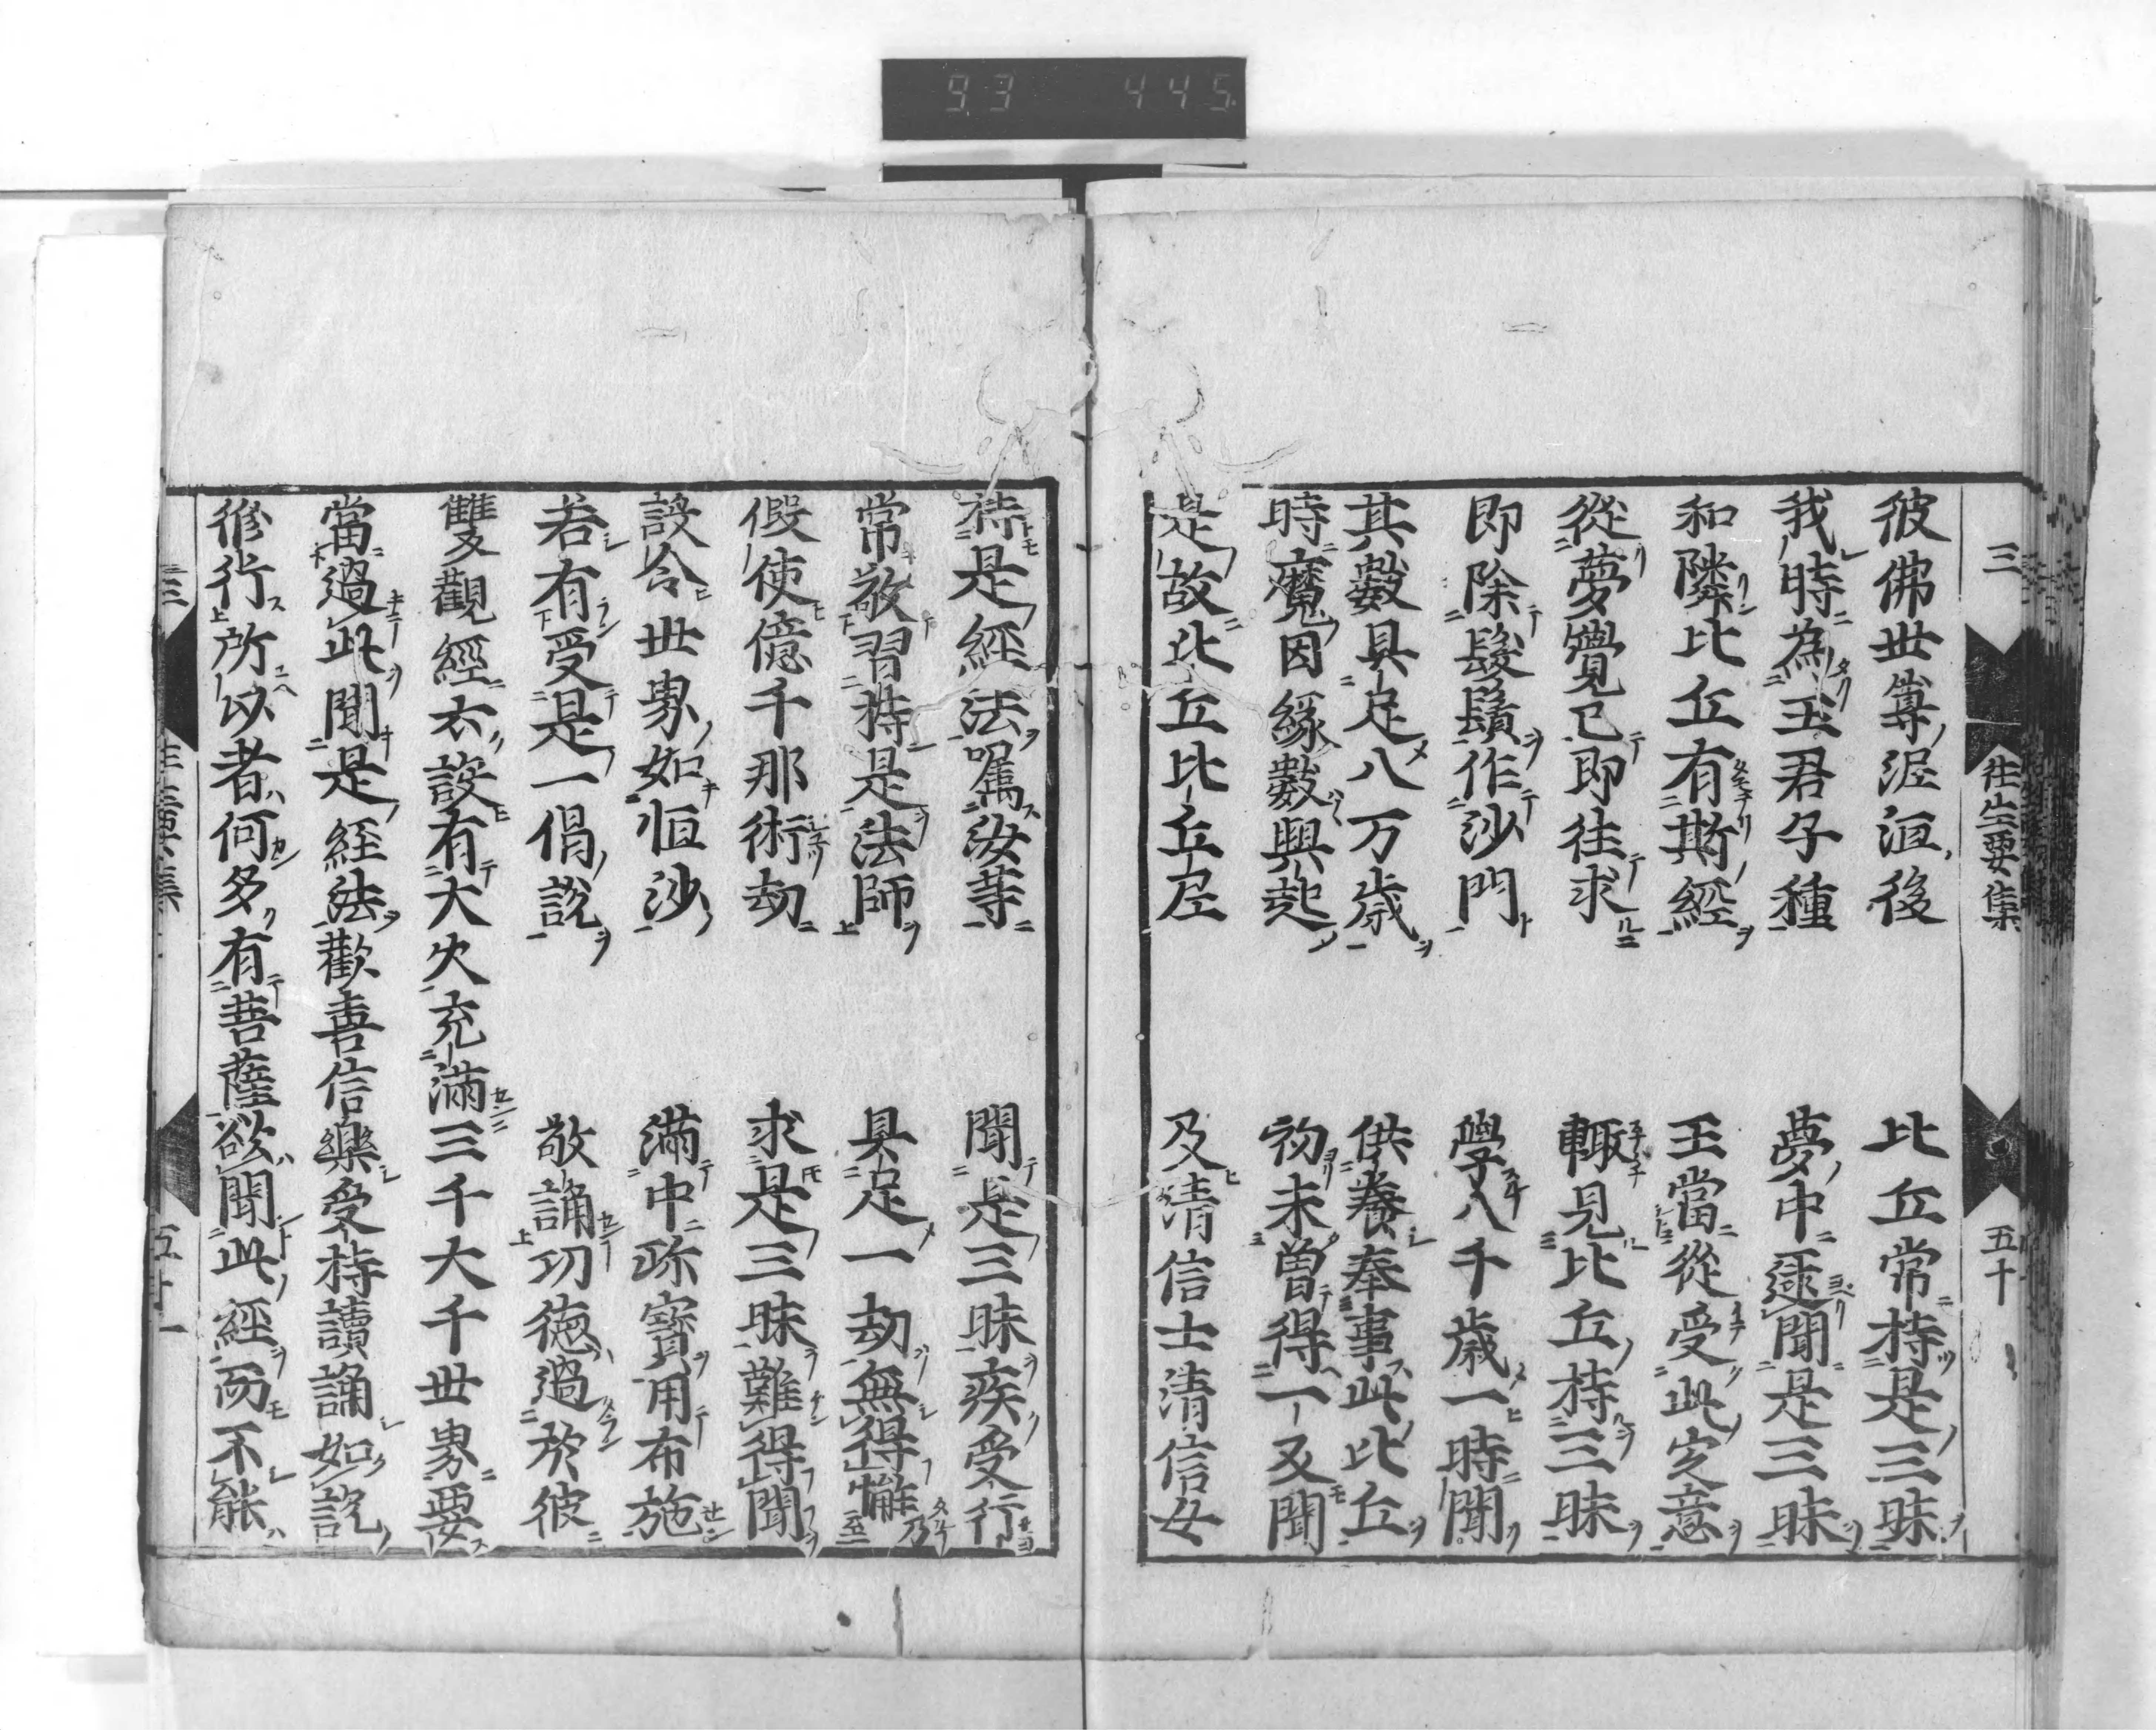 93 445
三 往生要集 五十
彼佛世尊泥洹後 比丘常持是三昧
我時為王君子種 夢中逮聞是三昧
和隣比丘有斯經 王當從受此定意
從夢覺已即往求 輙見比丘持三昧
即除髮鬚作沙門 學八千歲一時聞
其數具足八万歲 供養奉事此比丘
時魔因緣數興起 初未曽得一反聞
是故比丘比丘尼 及清信士清信女
持是經法嘱汝等 聞是三昧疾受行
常敬習持是法師 具足一劫無得懈
假使億千那術劫 求是三昧難得聞
設令世界如恒沙 滿中珎寳用布施
若有受是一偈說 敬誦功德過於彼
雙觀經云設有大火充滿三千大千世界要
當過此聞是経法歡喜信樂受持讀誦如說
修行所以者何多有菩薩欲聞此經而不能
三 往生要集 五十一